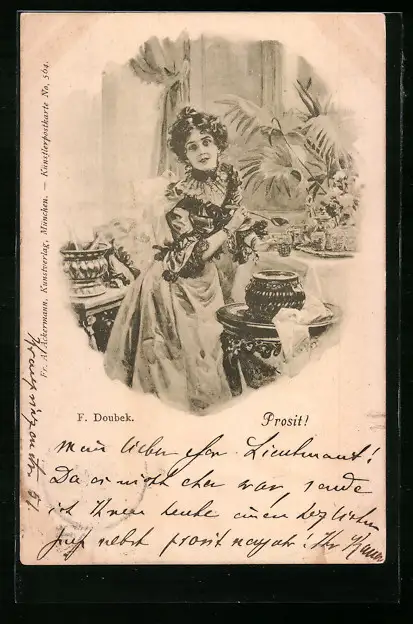 Fr. A. Ackermann, Kunstverlag, München. — Künstlerpostkarte No. 564.
F. Doubek.
Prosit!
Mein lieber Herr Lieutnant!
Da es nicht eher war, sende
ich Ihnen heute einen herzlichen
nebst prosit neujahr! Ihr